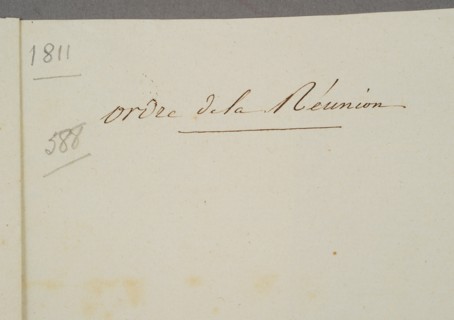 1811
ordre de la Réunion
588